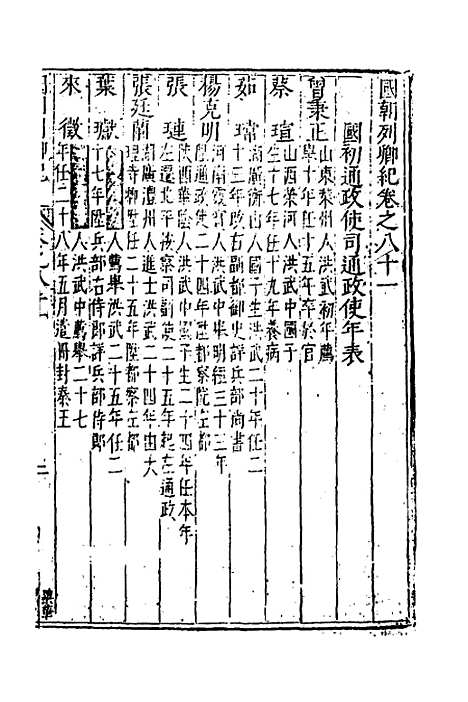 國朝列卿紀卷之八十一
國初通政使司通政使年表
曾秉正
山東萊州人洪武初年薦
舉十年任十五年卒於官
蔡瑄
山西榮河人洪武中國子
生十七年任十九年養病
茹瑺
湖廣衡山人國子生洪武二十年任二
十三年改右副都御史詳兵部尚書
楊克明
河南霞寳人洪武中舉明經二十三年
任通政使二十四年陞都察院左都
張璉
陝西華陰人洪武國子生二十四年任本年
左遷北平按察司副使二十五年起左通政
張廷蘭
湖廣澧州人進士洪武二十四年由大
理寺丞陞任二十五年陞都察左都
葉
人薦舉洪武二十五年任二
十七年陞兵部右侍郎詳兵部侍郎
來徵
人洪武中薦舉二十七
年任二十八年五月遣冊封秦王